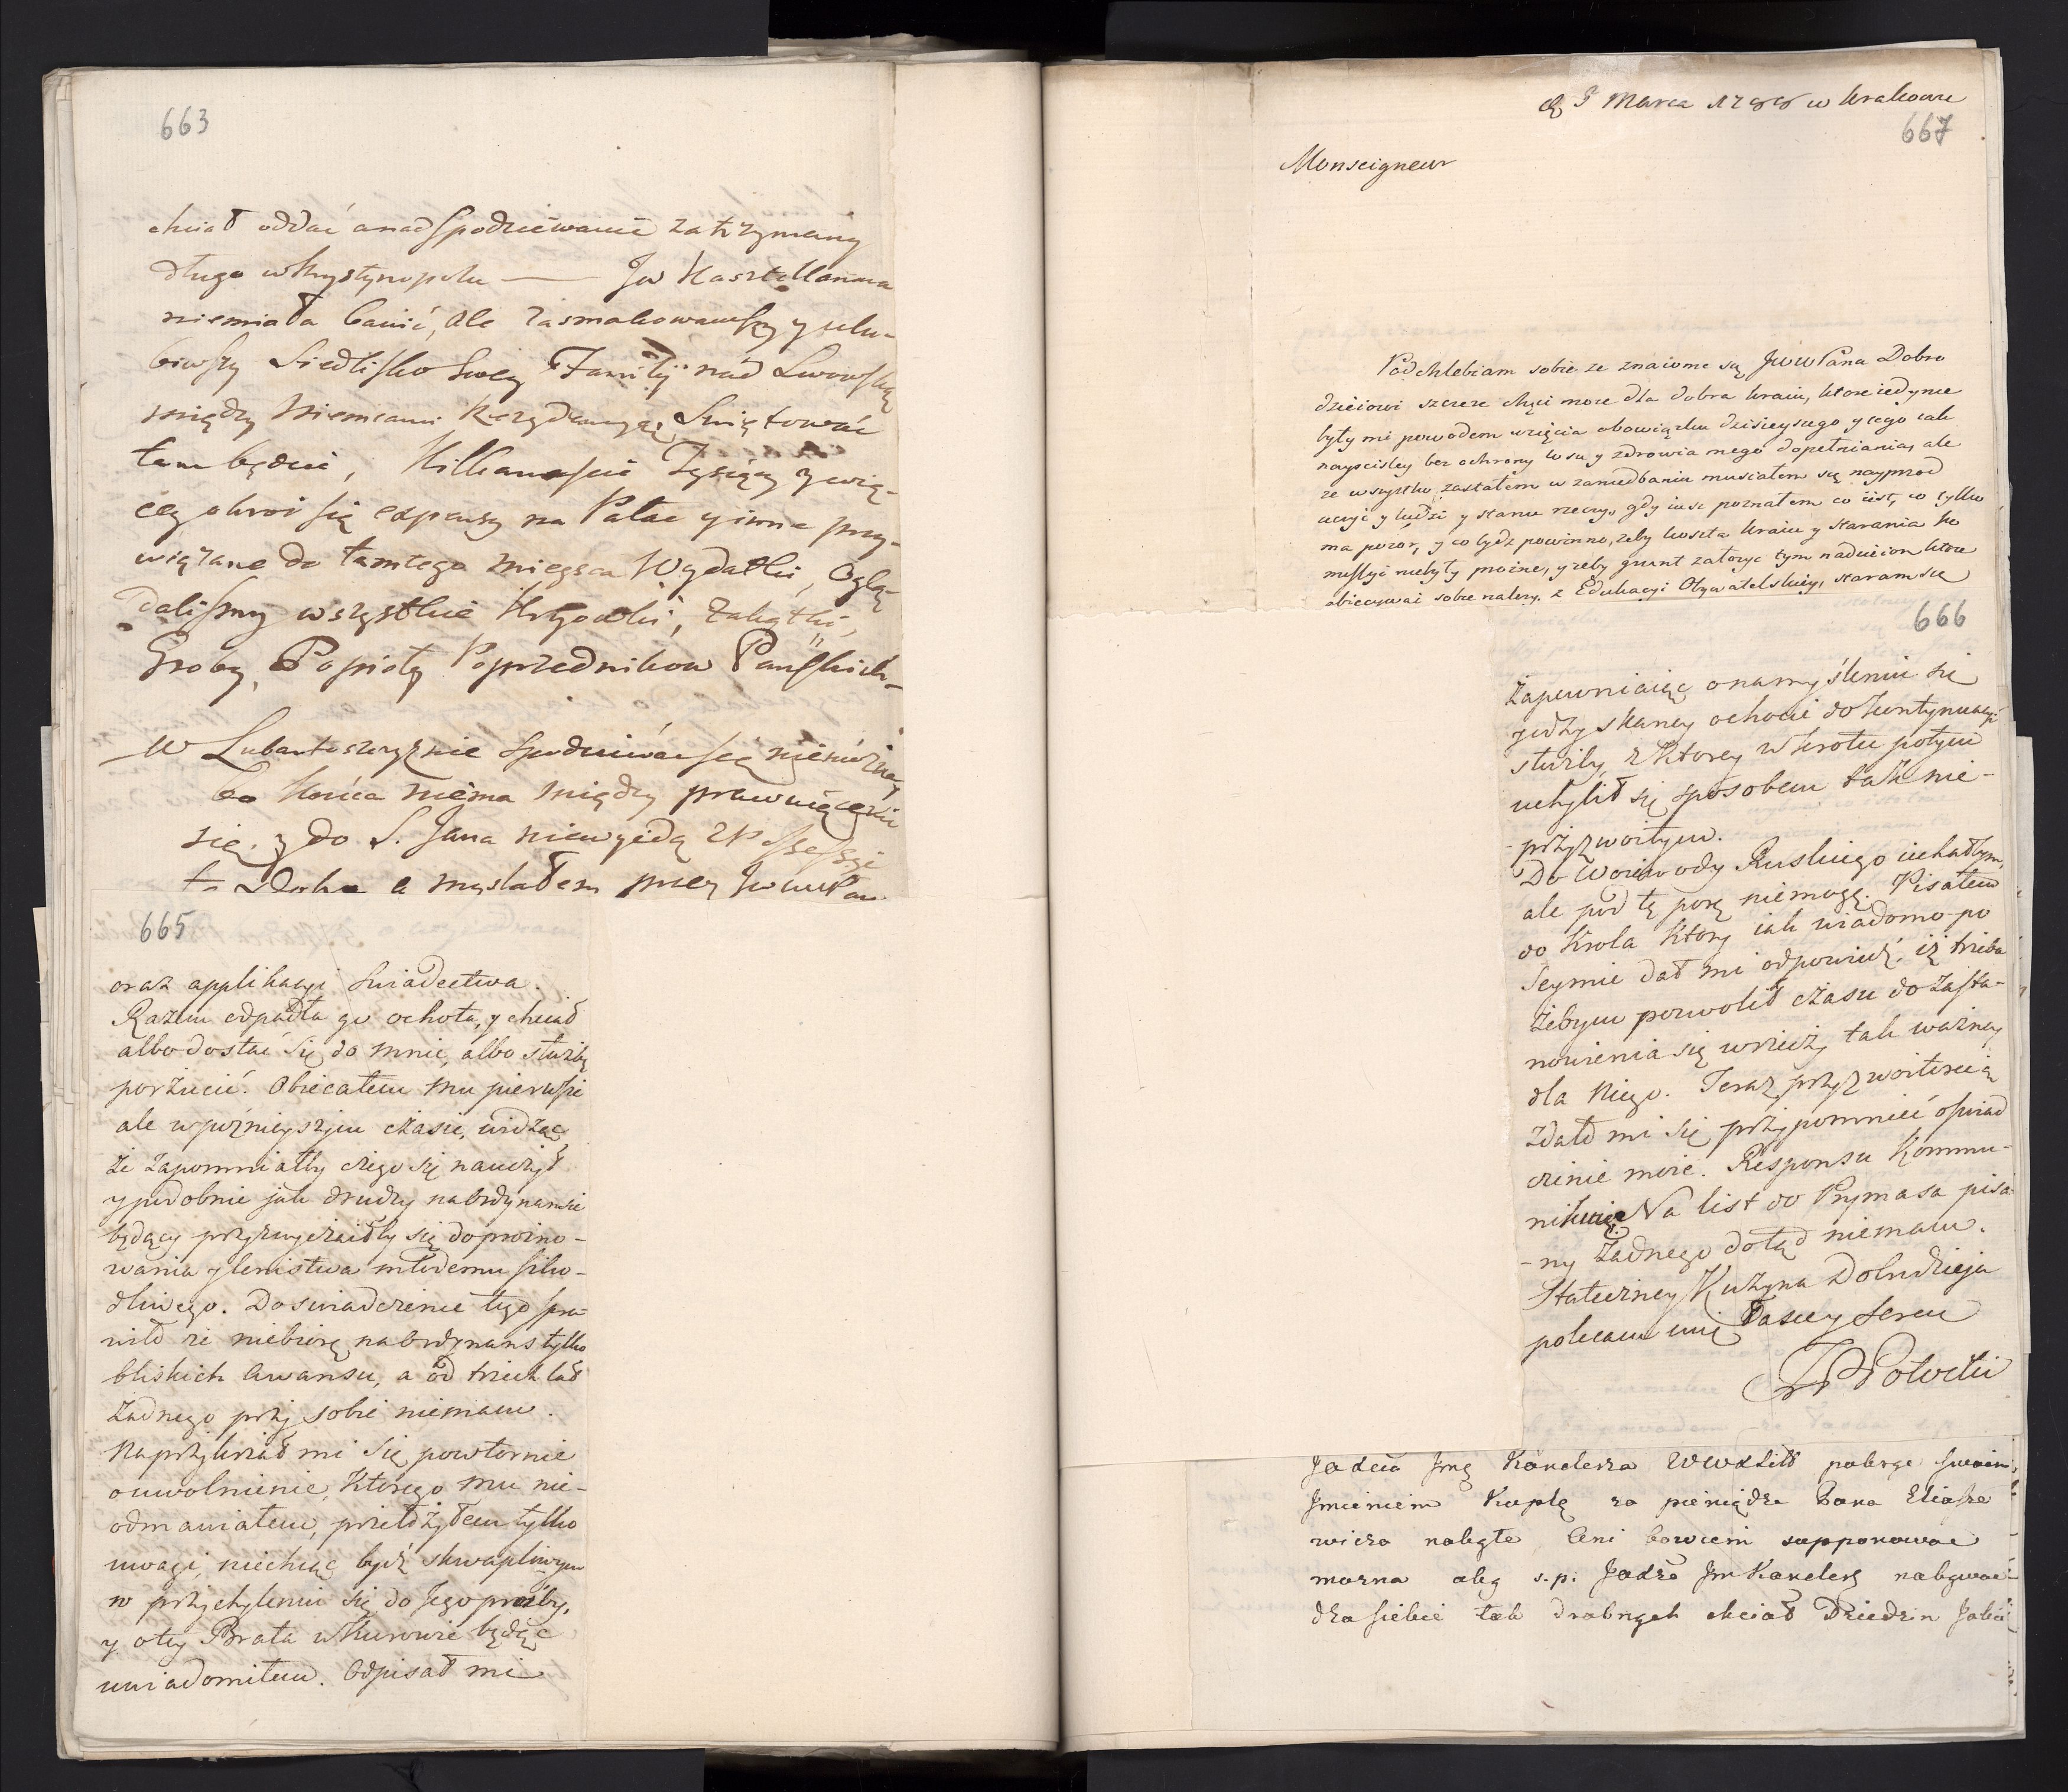 663
chciał oddać a nad spodziewanie zatrzymany
długo w Krystynopolu — Jw Kasztellanowa
niemiała bawić, ale zasmakowawszy y ulu-
biwszy Siedlisko swey Familij nad Lwowską
między Niemcami Rezydencyą, Świętować
tam będzie, Kilkanaście Tysięcy y wię-
cey okroi się expensy na Pałac y inne przy-
wiązane do tamtego mieysca Wydatki, Oglą-
daliśmy wszystkie
Groby, Popioły Poprzednikow Pańskich
W spodziewać się niemożna
bo końca niema między
się y do S. Jana niewyidą z Possessyi
a myslałem przez Jww Pan
665
oraz applikacyi świadectwa.
Razem odpadła go ochota, y chciał
albo dostać się do mnie, albo służbę
porzucić. Obiecałem mu pierwsze
ale w poźnieyszym czasie, widząc
że zapomniałby czego się nauczył
y podobnie jak drudzy na Ordynansie
będący przyzwyczaiłby się do prożno-
wania y lenistwa młodemu szko-
dliwego. Doswiadczenie tego spra-
wiło że niebiorę na Ordynans tylko
bliskich Awansu, a od trzech lat
żadnego przy sobie niemam.
Naprzykrzał mi się powtornie
o uwolnienie, ktorego mu nie-
odmawiałem, przełożyłem tylko
uwagi, niechcąc bydź skwapliwym
w przychyleniu się do Jego prozby,
y o tey Brata w Kurowie będąc
uwiadomiłem. Odpisał mi
d. 3 Marca 1786 w Krakowie
667
Monseigneur
Podchlebiam sobie ze znaiome są Jww Pana Dobro
dzieiowi szczere chęci moie dla dobra kraiu, ktore iedynie
były mi powodem wzięcia obowiązku dzisieyszego y iego iak
nayscisley bez ochrony losu y zdrowia mego dopełniania, ale
ze wszystko zastałem w zaniedbaniu musiałem się nayprzod
uczyć y ludzi y stanu rzeczy, gdy iusz poznałem co iest, co tylko
ma pozor, y co bydz powinno, zeby koszta kraiu y starania Ko
missyi niebyły prożne, y zeby grunt załozyc tym nadzieiom ktore
obiecywać sobie nalezy z Edukacyi Obywatelskiey, staram się
666
Zapewniaiąc o namyśleniu się
y odzyskaney ochocie do kontynuacyi
służby, z ktorey wkrotce potym
uchylił się sposobem tak nie-
-przyzwoitym.
Do Woiewody Ruskiego iechałbym,
ale pod tę porę niemogę. Pisałem
do Krola ktory iak wiadomo po
Seymie dał mi odpowiedź, iż trzeba
żebym pozwolił czasu do zasta-
nowienia się w rzeczy tak ważney
dla niego. Teraz przyzwoitością
zdało mi się przypomnieć oświad
czenie moie. Responsu kommu-
nikuię Na list do Prymasa pisa-
-ny żadnego dotąd niemam.
Stateczney Kuzyna Dobrodzieja
polecam mię łasce y sercu
Potocki
Jadcia Jmę Kanclerza wwodził pobrze swoim,
Jmieniem Kuplę za pieniądze Pana Eliasze
wicza nabyte, Ceni bowiem supponowac
mozna aby s.p. Jadże Jm Kanclerz nabywać
dla siebie tak drobnych chciał Dziedzin Jakie